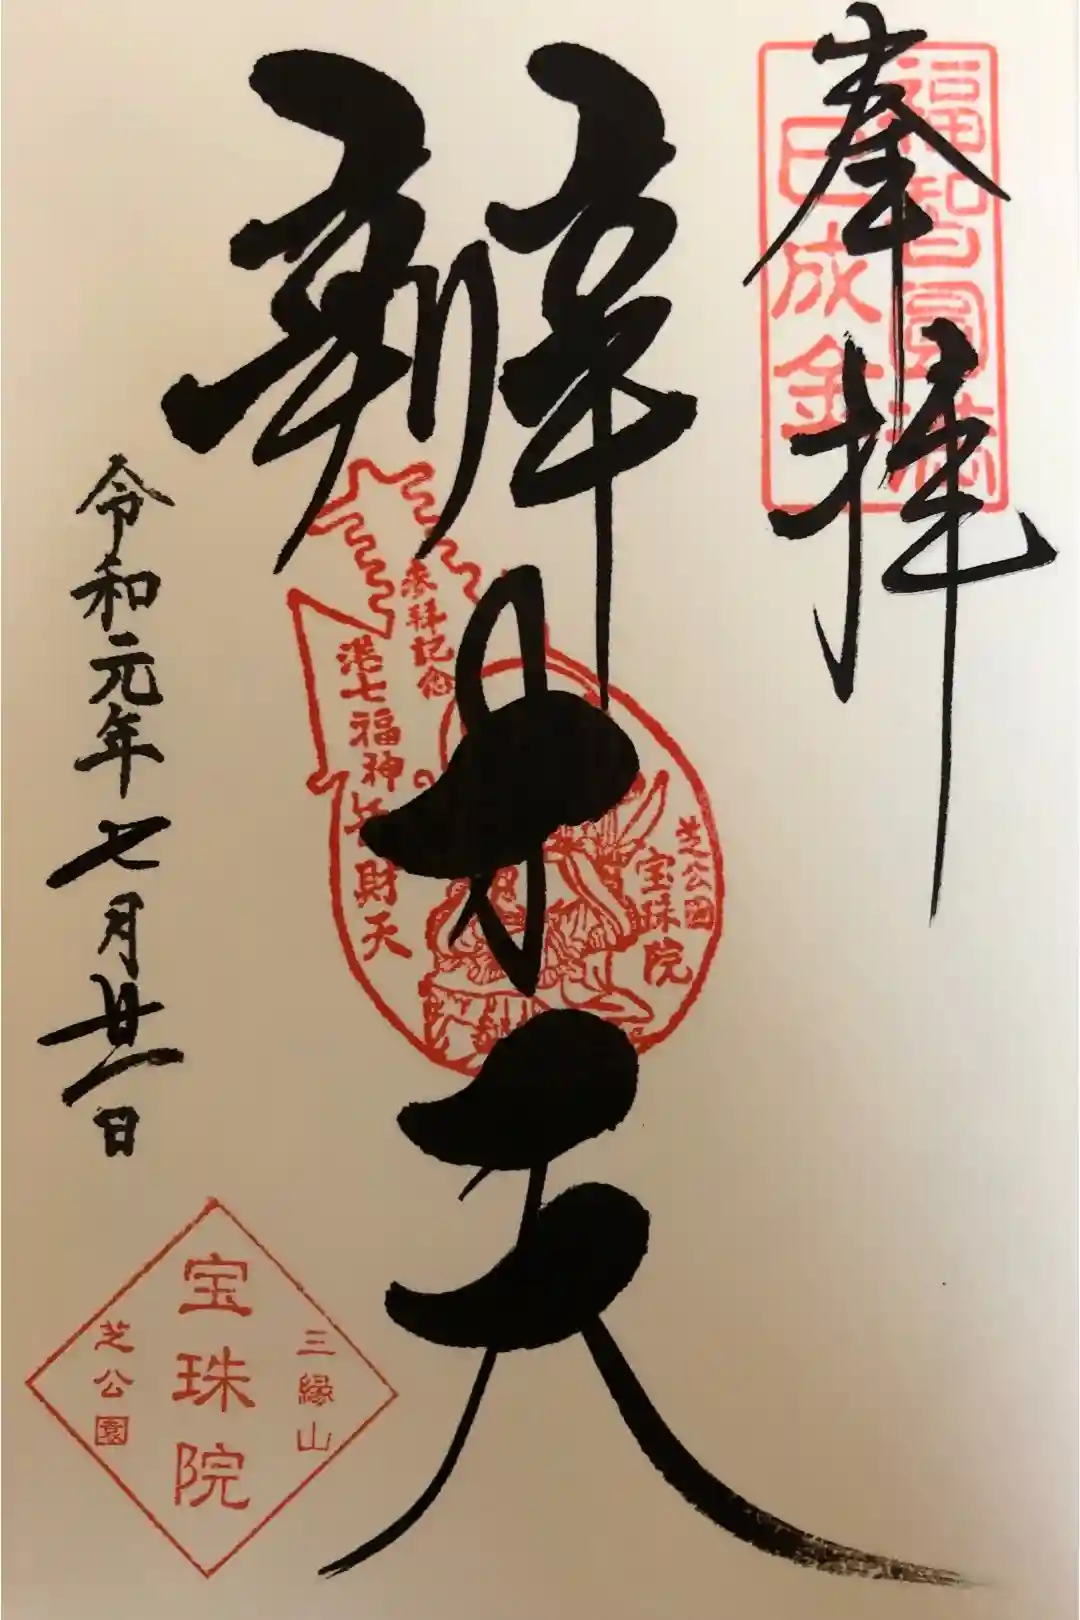 奉拝
福智圓満
巳成金
辨才天
参拝記念
港七福神
弁財天
芝公園
宝珠院
令和元年七月廿一日
三縁山
宝珠院
芝公園